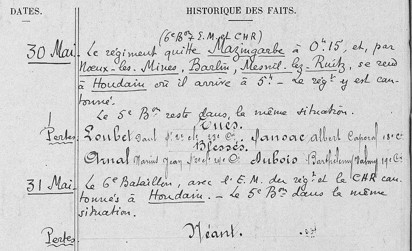 DATES. HISTORIQUE DES FAITS.
(6e Bon, E.M. et CHR)
30 Mai. Le régiment quitte Mazingarbe à 0h15, et, par
Nœux-les-Mines, Barlin, Mesnil-lez-Ruitz, se rend
à Houdain où il arrive à 5h - Le régt y est can-
tonné.
Le 5e Bon reste dans la même situation.
Tués.
Pertes Loubet Paul Sat 2e cl. Cie, Jansac Albert Caporal 18e Cie
Blessés.
Arnal Marius Jean 2e cl. Cie Dubois Barthélemy 18e Cie
31 Mai. Le 6e Bataillon, avec l'E.M. du régt et la CHR can-
tonnés à Houdain. - Le 5e Bon dans la même
situation.
Pertes Néant.